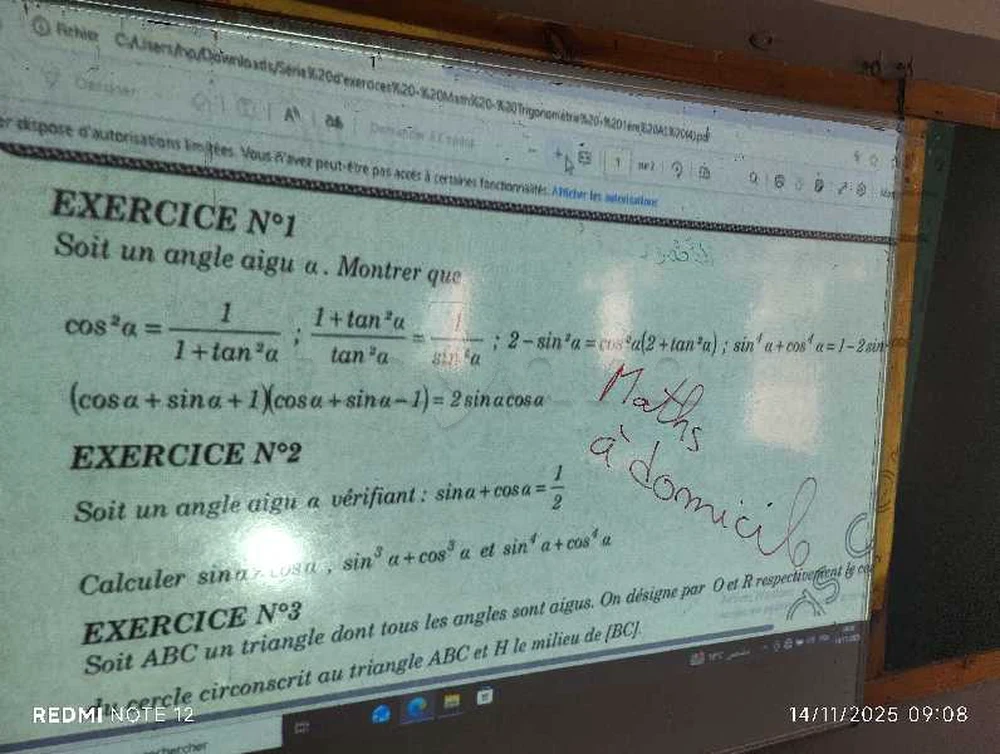 Fichier C:/Users/hp/Downloads/Série%20d'exercices%20-%20Math%20-%20Trigonométrie%20-%201ère%20AS%20(4).pdf
Dessiner
Demander à Copilot
1 sur 2
er dispose d'autorisations limitées. Vous n'avez peut-être pas accès à certaines fonctionnalités. Afficher les autorisations
EXERCICE N°1
Soit un angle aigu α. Montrer que
cos²α = 1/(1+tan²α) ; (1+tan²α)/tan²α = 1/sin²α ; 2-sin²α = cos²α(2+tan²α) ; sin⁴α+cos⁴α=1-2sin
(cosα+sinα+1)(cosα+sinα-1)=2sinαcosα
Maths
à domicil
EXERCICE N°2
Soit un angle aigu α vérifiant : sinα+cosα=1/2
Calculer sinα cosα, sin³α+cos³α et sin⁴α+cos⁴α
EXERCICE N°3
Soit ABC un triangle dont tous les angles sont aigus. On désigne par O et R respectivement le ce
du cercle circonscrit au triangle ABC et H le milieu de [BC].
REDMI NOTE 12
14/11/2025 09:08